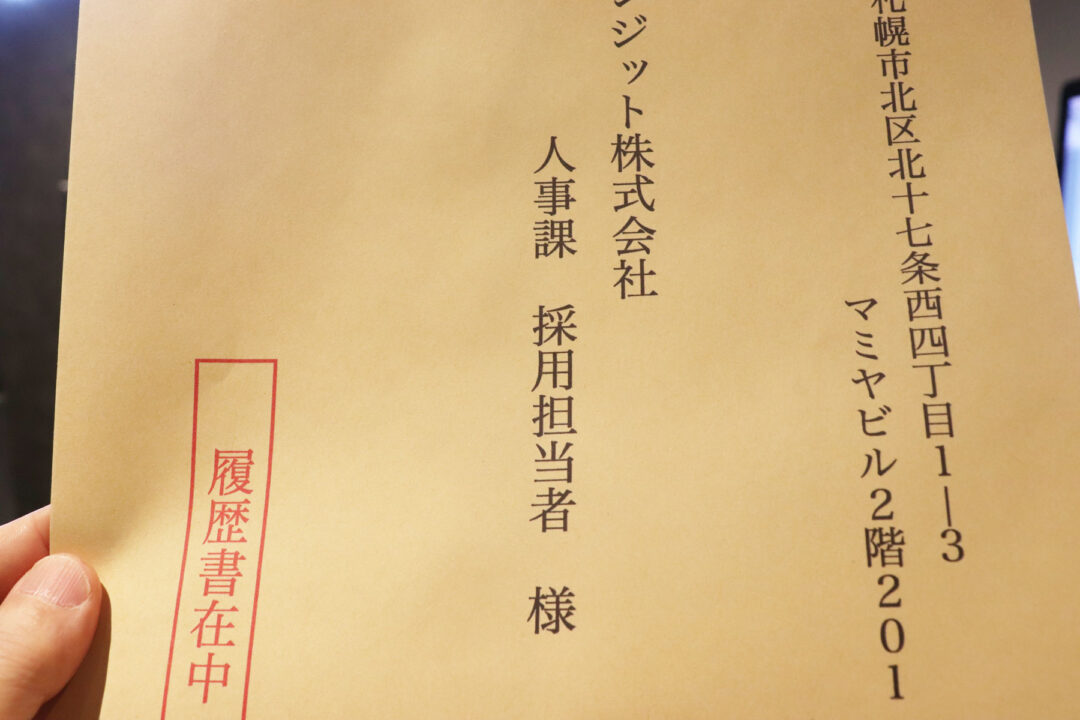 札幌市北区北十七条西四丁目1―3
マミヤビル2階201
ンジット株式会社
人事課　採用担当者　様
履歴書在中